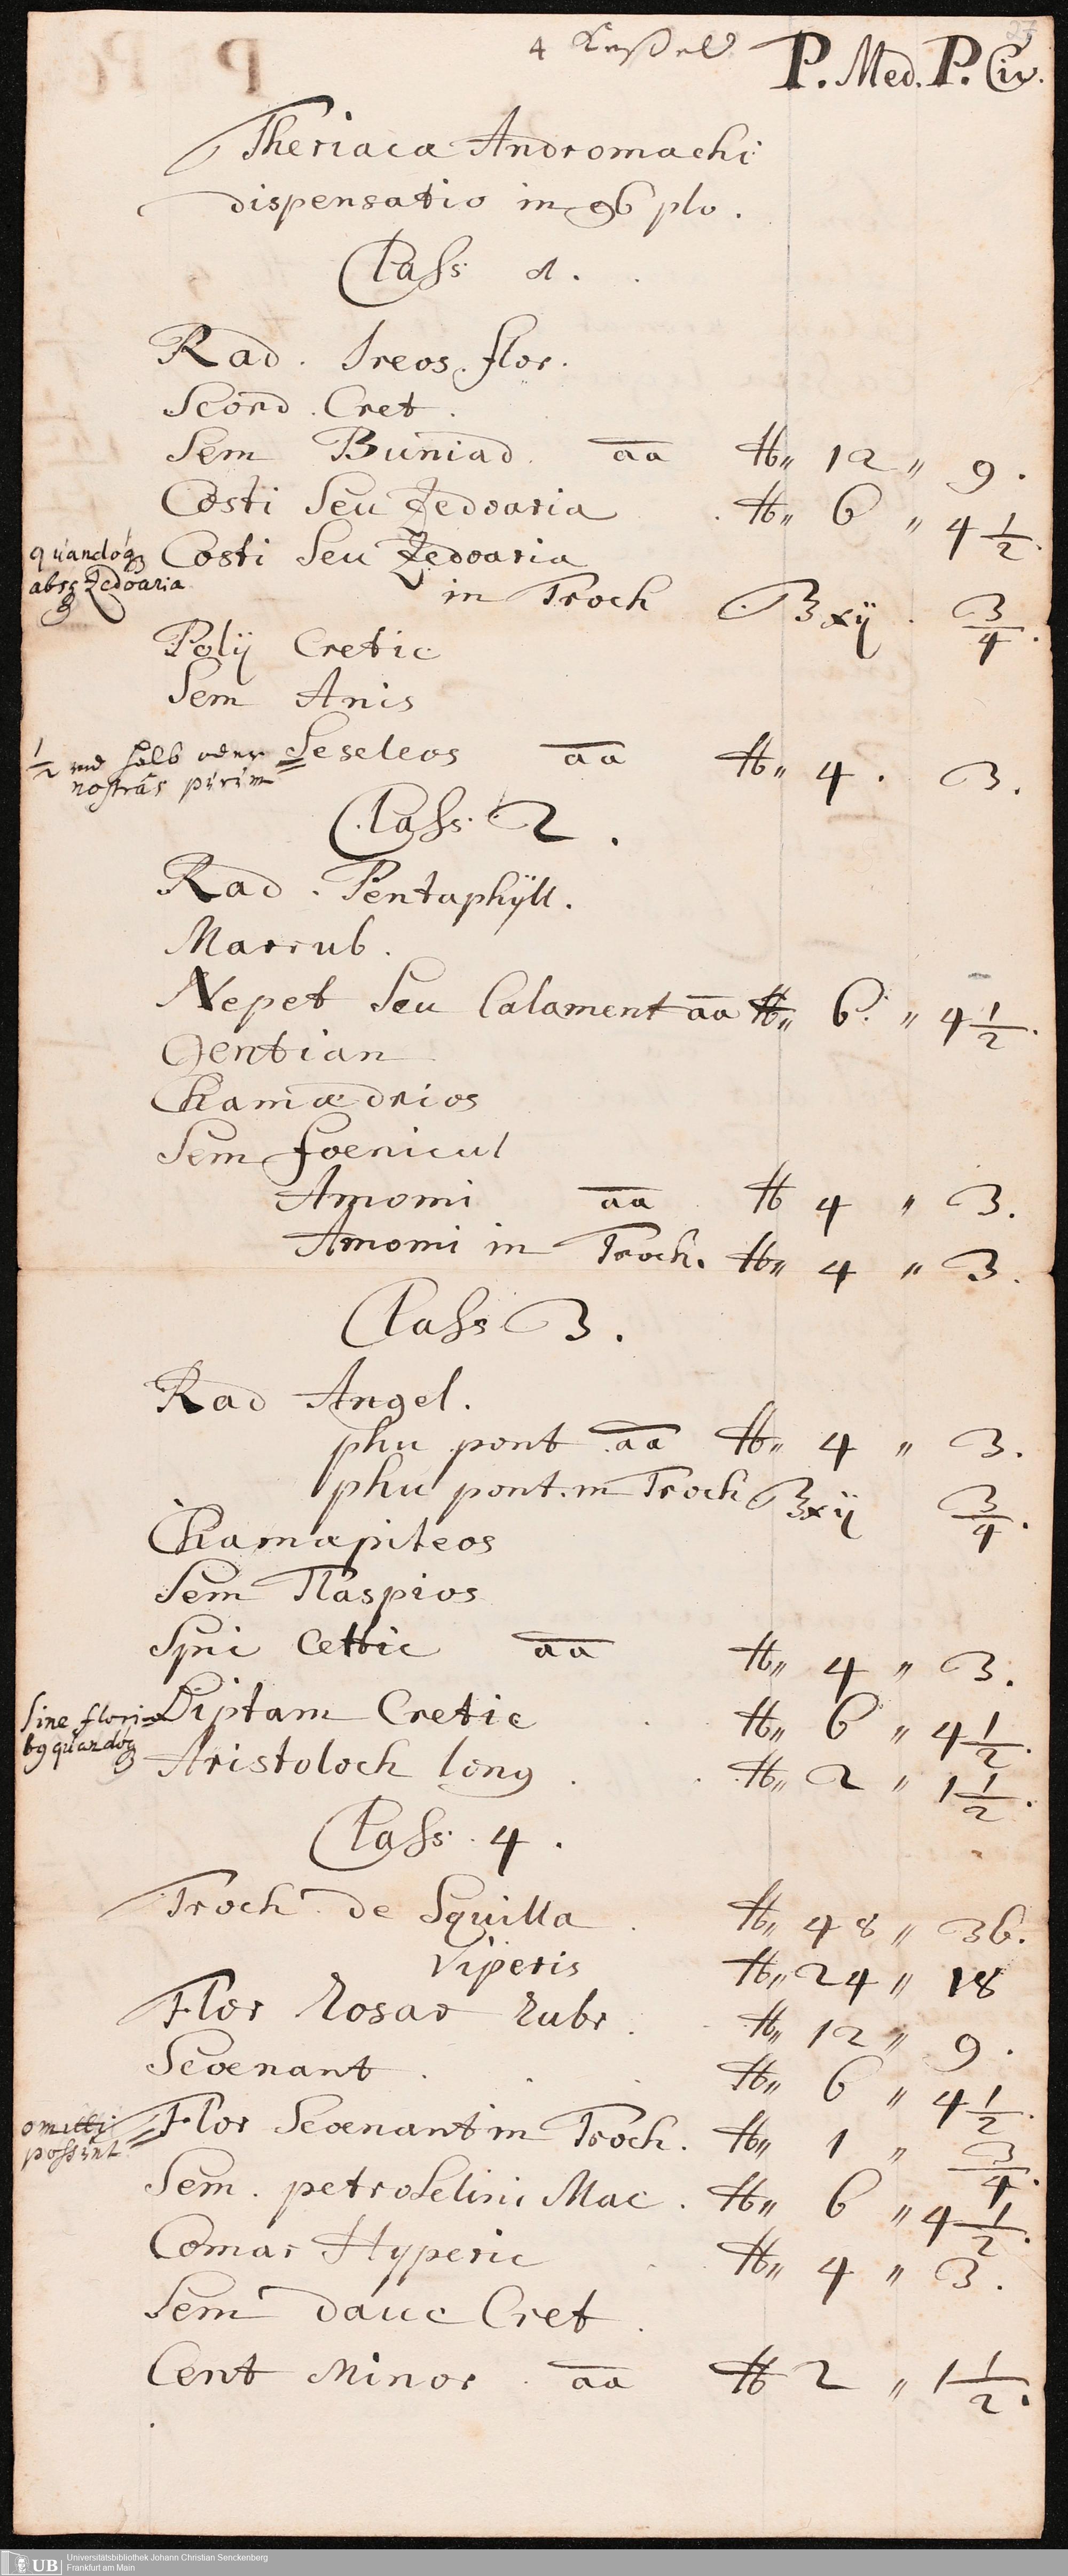 4 Keßel P. Med. P. Civ.
Theriaca Andromachi
dispensatio in 96 plo.
Class 1.
Rad. Ireos flor.
Scord. Cret.
Sem Buniad. aa ℔ 12 " 9.
Costi seu Zedoaria ℔ 6 " 4 1/2.
quandoq Costi seu Zedoaria
absq Zedoaria
in Troch ℥xij. 3/4.
Polÿ Cretic
Sem Anis
1/2 halb oder Seseleos aa ℔ 4. 3.
nostras
Class. 2.
Rad. Pentaphÿll.
Marrub.
Nepet seu Calament aa ℔ 6. " 4 1/2.
Gentian
Chamædrios
Sem foenicul
Amomi aa ℔ 4 " 3.
Amomi in Troch. ℔ 4 " 3.
Class 3.
Rad Angel.
phu pont aa ℔ 4 " 3.
phu pont. in Troch ℥xij 3/4.
Chamapiteos
Sem Tlaspios
Spic Celtic aa ℔ 4 " 3.
Sine flori= Diptam Cretic ℔ 6 " 4 1/2.
bq quandoq Aristoloch long. ℔ 2 " 1 1/2.
Class. 4.
Troch de Squilla ℔ 48 " 36.
Viperis ℔ 24 " 18
Flor Rosar Rubr. ℔ 12 " 9.
Scoenant. ℔ 6 " 4 1/2.
omitti Flor Scoenant in Troch. ℔ 1 " 3/4.
possunt
Sem. petroselini Mac. ℔ 6 " 4 1/2.
Comar Hyperic ℔ 4 " 3.
Sem dauc Cret.
Cent Minor. aa ℔ 2 " 1 1/2.
UB Universitätsbibliothek Johann Christian Senckenberg
Frankfurt am Main